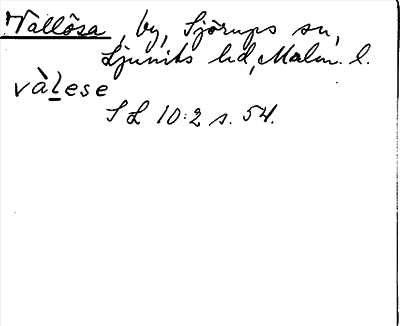 Vallösa, by, Sjörups sn,
Ljunits hd, Malm. l.
vàlese
SL 10:2 s. 54.